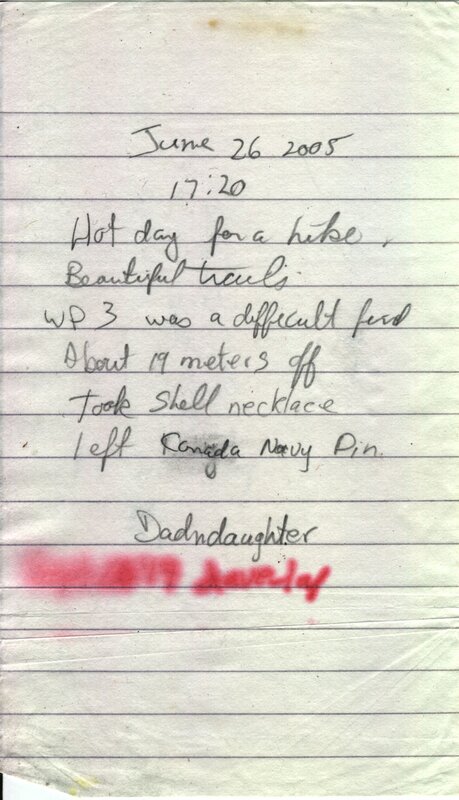 June 26 2005
17:20
Hot day for a hike.
Beautiful trails.
WP 3 was a difficult find
About 19 meters off
Took Shell necklace
left Canada Navy Pin.
Dadndaughter